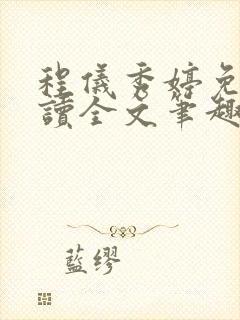 程儀秀婷免
讀全文筆趣
藍繆